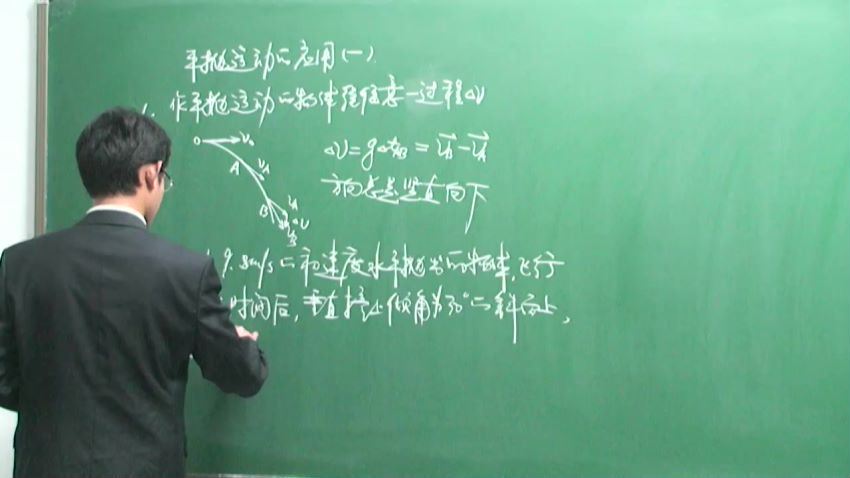 平抛运动的应用(一)
1. 作平抛运动的物体经任意一过程ΔV
O V₀
ΔV=gΔt_AB=V⃗_B-V⃗_A
A V_A
方向总是竖直向下
V_A
B ΔV
V_B
9.8m/s的初速度水平抛出的物体,飞行
时间后,垂直撞在倾角为30°的斜面上,